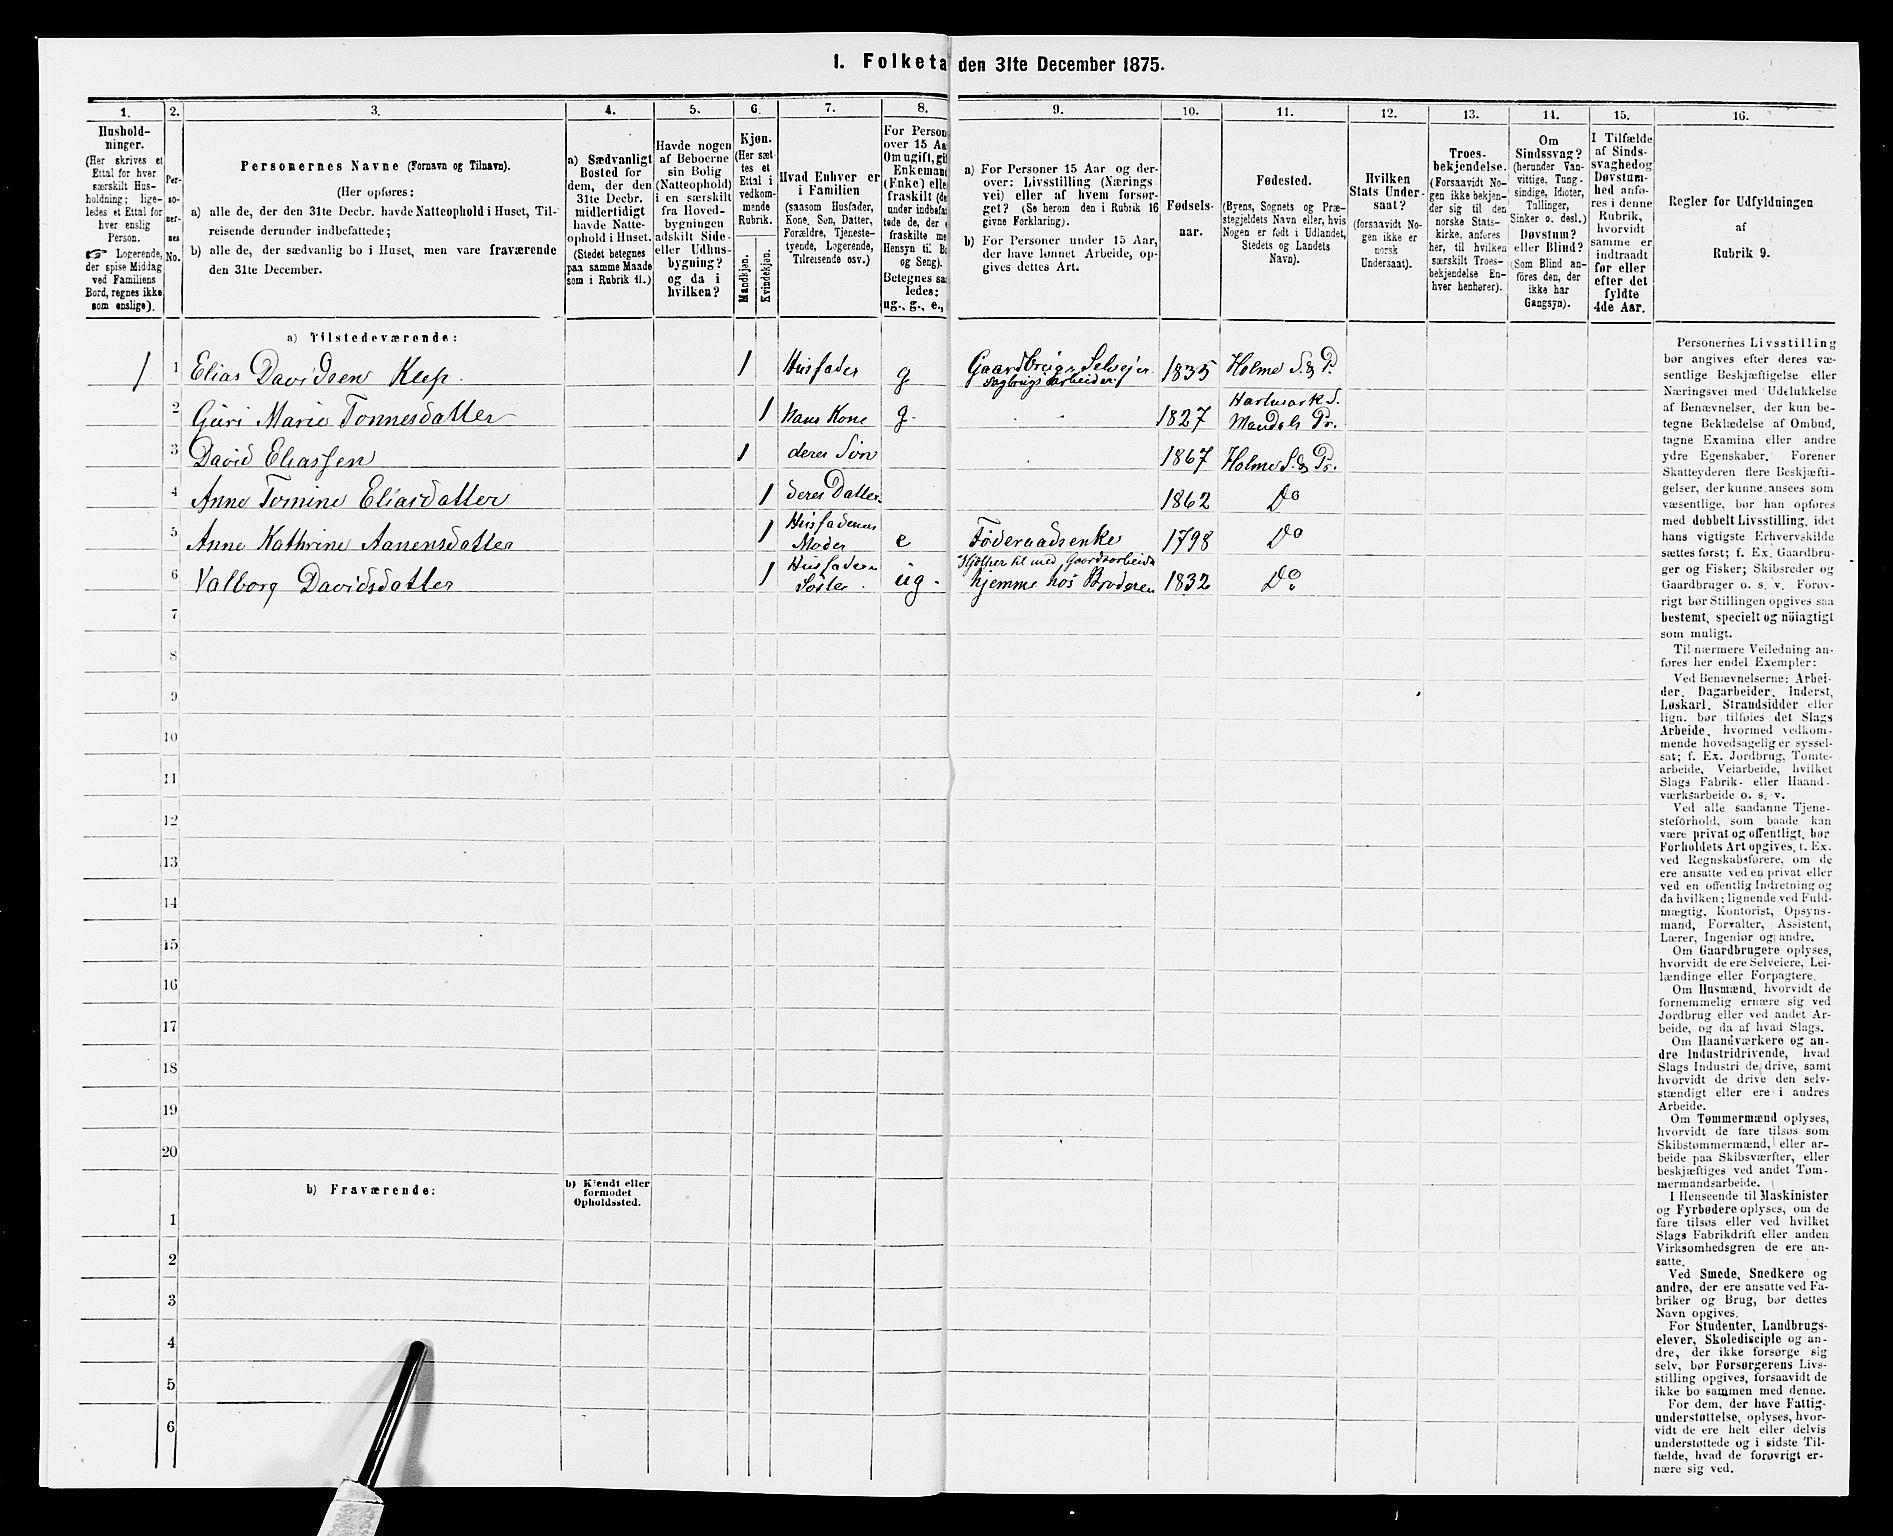 1. Folketa den 31te December 1875.
1. 2. 3. 4. 5. 6. 7. 8. 9. 10. 11. 12. 13. 14. 15. 16.
Hushold-
ninger.
(Her skrives et
Ettal for hver
særskilt Hus-
holdning; lige-
ledes et Ettal for
hver enslig
Person.
☞ Logerende,
der spise Middag
ved Familiens
Bord, regnes ikke
som enslige).
Per-
so-
ner-
nes
No.
Personernes Navne (Fornavn og Tilnavn).
(Her opføres:
a) alle de, der den 31te Decbr. havde Natteophold i Huset, Til-
reisende derunder indbefattede;
b) alle de, der sædvanlig bo i Huset, men vare fraværende
den 31te December.
a) Sædvanligt
Bosted for
dem, der den
31te Decbr.
midlertidigt
havde Natte-
ophold i Huset.
(Stedet betegnes
paa samme Maade
som i Rubrik 11.)
Havde nogen
af Beboerne
sin Bolig
(Natteophold)
i en særskilt
fra Hoved-
bygningen
adskilt Side-
eller Udhus-
bygning?
og da i
hvilken?
Kjøn.
(Her sæt
tes et
Ettal i
vedkom-
mende
Rubrik.
Mandkjøn.
Kvindekjøn.
Hvad Enhver er
i Familien
(saasom Husfader,
Kone, Søn, Datter,
Forældre, Tjeneste-
tyende, Logerende,
Tilreisende osv.)
For Person
over 15 Aa
Om ugift, gif
Enkemand
(Enke) elle
fraskilt (de
under indbefat
tede de, der e
fraskilte me
Hensyn til Bo
og Seng).
Betegnes saa
ledes:
ug., g., e.,
a) For Personer 15 Aar og der-
over: Livsstilling (Nærings
vei) eller af hvem forsør-
get? (Se herom den i Rubrik 16
givne Forklaring).
b) For Personer under 15 Aar,
der have lønnet Arbeide, op-
gives dettes Art.
Fødsels-
aar.
Fødested.
(Byens, Sognets og Præ-
stegjeldets Navn eller, hvis
Nogen er født i Udlandet,
Stedets og Landets
Navn).
Hvilken
Stats Under-
saat?
(forsaavidt No-
gen ikke er
norsk
Undersaat).
Troes-
bekjendelse.
(Forsaavidt No-
gen ikke bekjen-
der sig til den
norske Stats-
kirke, anføres
her, til hvilken
særskilt Troes-
bekjendelse En-
hver henhører).
Om
Sindssvag?
(herunder Van-
vittige, Tung-
sindige, Idioter,
Tullinger,
Sinker o. desl.)
Døvstum?
eller Blind?
(Som Blind an-
føres den, der
ikke har
Gangsyn).
I Tilfælde
af Sinds-
svaghed og
Døvstum-
hed anfø-
res i denne
Rubrik,
hvorvidt
samme er
indtraadt
før eller
efter det
fyldte
4de Aar.
Regler for Udfyldningen
af
Rubrik 9.
a) Tilstedeværende:
1 1 Elias Davidsen Kleep. 1 Husfader g Gaardbruger Selveier 1835 Holme S. & P.
sagbrugsarbeider
2 Guri Marie Tonnesdatter 1 hans Kone g. 1827 Hartmark S.
Mandals Pr.
3 David Eliassen 1 deres Søn 1867 Holme S. & Pr.
4 Anne Tomine Eliasdatter 1 deres Datter 1862 Do
5 Anne Kathrine Aanensdatter 1 Husfaderens
Moder e Føderaadsenke 1798 Do
6 Valborg Davidsdatter 1 Husfaderens
Søster ug. Hjælper til med Gaardsarbeide
hjemme hos Broderen 1832 Do
7
8
9
10
11
12
13
14
15
16
17
18
19
20
b) Fraværende:
b) Kjendt eller
formodet
Opholdssted.
1
2
3
4
5
6
Personernes Livsstilling
bør angives efter deres væ-
sentlige Beskjæftigelse eller
Næringsvei med Udelukkelse
af Benævnelser, der kun be-
tegne Beklædelse af Ombud,
tagne Examina eller andre
ydre Egenskaber. Forener
Skatteyderen flere Beskjæfti-
gelser, der kunne ansees som
væsentlige, bør han opføres
med dobbelt Livsstilling, idet
hans vigtigste Erhvervskilde
sættes først; f. Ex. Gaardbru-
ger og Fisker; Skibsreder og
Gaardbruger o. s. v. Forøv-
rigt bør Stillingen opgives saa
bestemt, specielt og nöiagtigt
som muligt.
Til nærmere Veiledning an-
føres her endel Exempler:
Ved Benævnelserne: Arbei-
der, Dagarbeider, Inderst,
Løskarl, Strandsidder eller
lign. bør tilføies det Slags
Arbeide, hvormed vedkom-
mende hovedsagelig er syssel-
sat; f. Ex. Jordbrug, Tomte-
arbeide, Veiarbeide, hvilket
Slags Fabrik- eller Haand-
værksarbeide o. s. v.
Ved alle saadanne Tjene-
steforhold, som baade kan
være privat og offentligt, bør
Forholdets Art opgives, f. Ex.
ved Regnskabsførere, om de
ere ansatte ved en privat eller
ved en offentlig Indretning og
da hvilken; lignende ved Fuld-
mægtig, Kontorist, Opsyns-
mand, Forvalter, Assistent,
Lærer, Ingeniør og andre.
Om Gaardbrugere oplyses,
hvorvidt de ere Selveiere, Lei-
lændinge eller Forpagtere.
Om Husmænd, hvorvidt de
fornemmelig ernære sig ved
Jordbrug eller ved andet Ar-
beide, og da af hvad Slags.
Om Haandværkere og an-
dre Industridrivende, hvad
Slags Industri de drive, samt
hvorvidt de drive den selv-
stændigt eller ere i andres
Arbeide.
Om Tømmermænd oplyses,
hvorvidt de fare tilsøs som
Skibstømmermænd, eller ar-
beide paa Skibsværfter, eller
beskjæftiges ved andet Tøm-
mermandsarbeide.
I Henseende til Maskinister
og Fyrbødere oplyses, om de
fare tilsøs eller ved hvilket
Slags Fabrikdrift eller anden
Virksomhedsgren de ere an-
satte.
Ved Smede, Snedkere og
andre, der ere ansatte ved Fa-
briker og Brug, bør dettes
Navn opgives.
For Studenter, Landbrugs-
elever, Skoledisciple og an-
dre, der ikke forsørge sig
selv, bør Forsørgerens Livs-
stilling opgives, forsaavidt de
ikke bo sammen med denne.
For dem, der have Fattig-
understøttelse, oplyses, hvor-
vidt de ere helt eller delvis
understøttede og i sidste Til-
fælde, hvad de forøvrigt er-
nære sig ved.